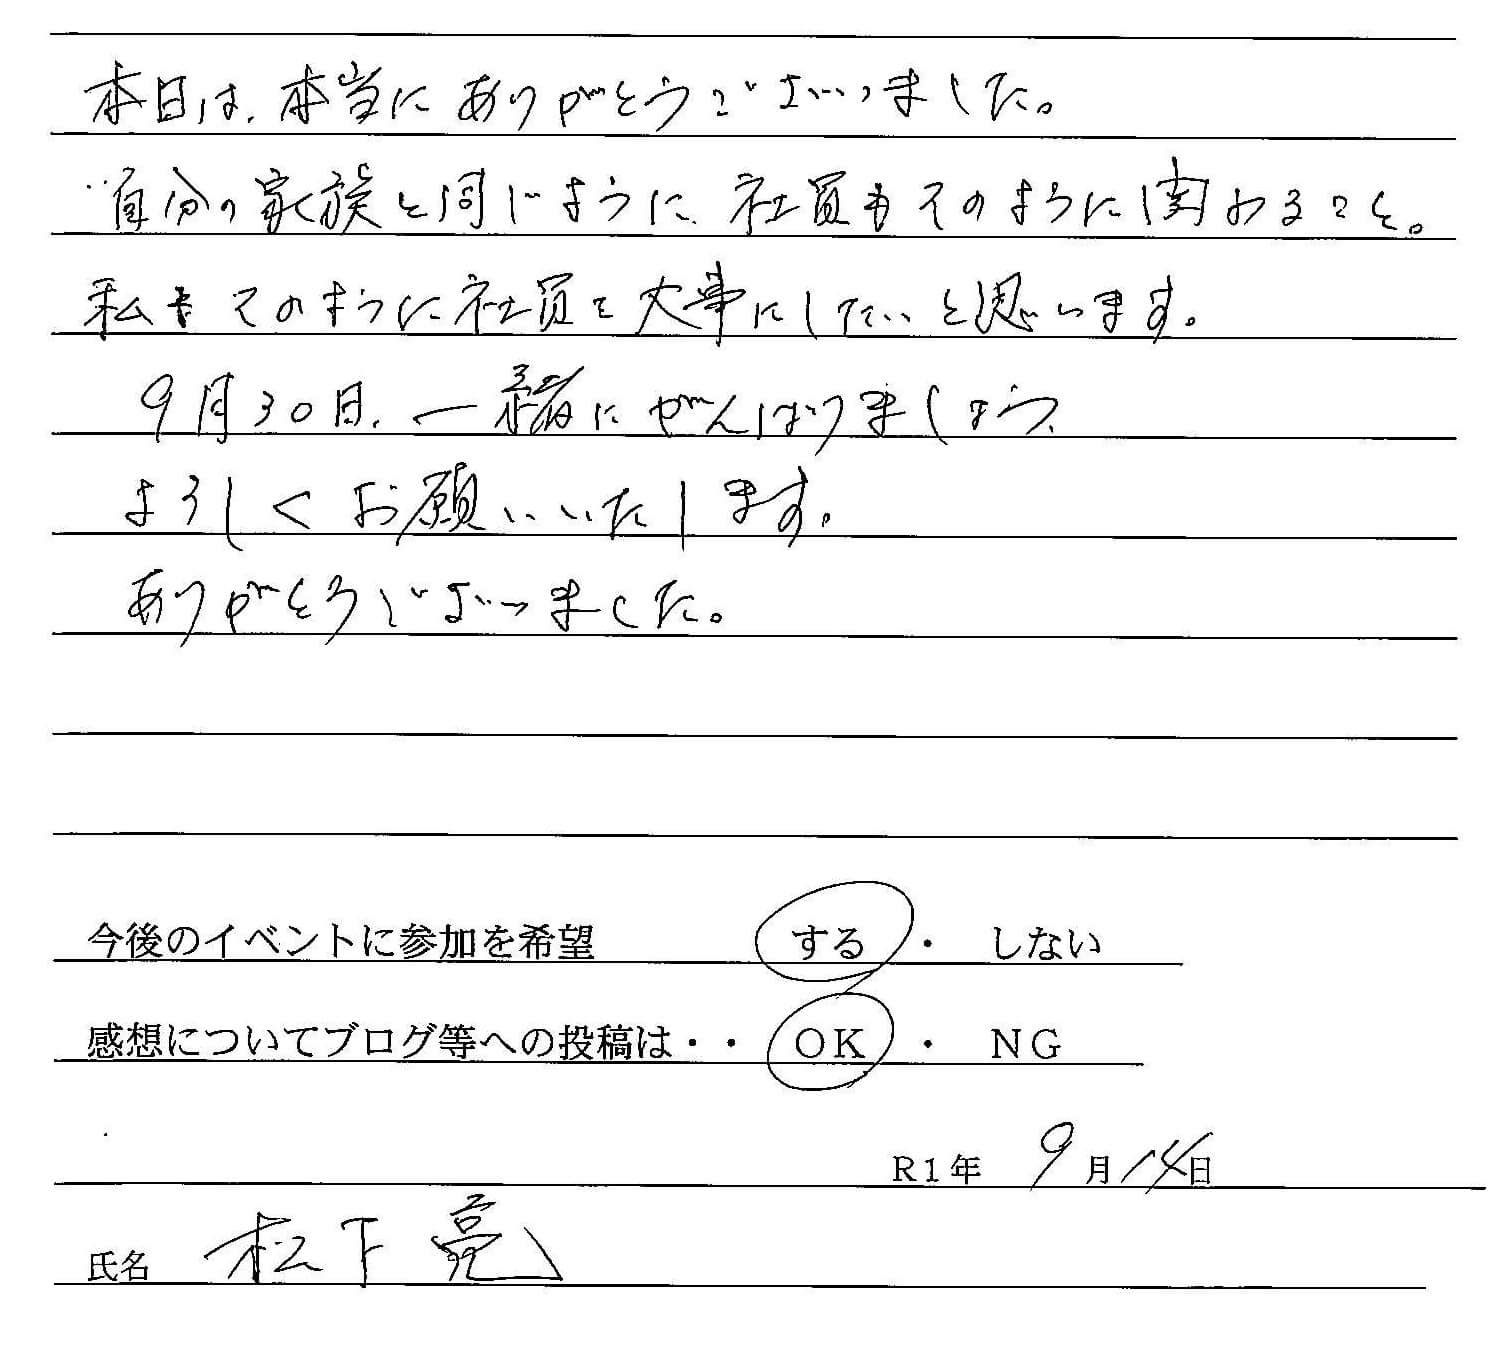 本日は、本当にありがとうございました。
自分の家族と同じように、社員もそのように関わること。
私もそのように社員を大事にしたいと思います。
9月30日、一緒にがんばりましょう、
よろしくお願いいたします。
ありがとうございました。
今後のイベントに参加を希望 する ・ しない
感想についてブログ等への投稿は・・ OK ・ NG
R1年 9月14日
氏名 松下 亮